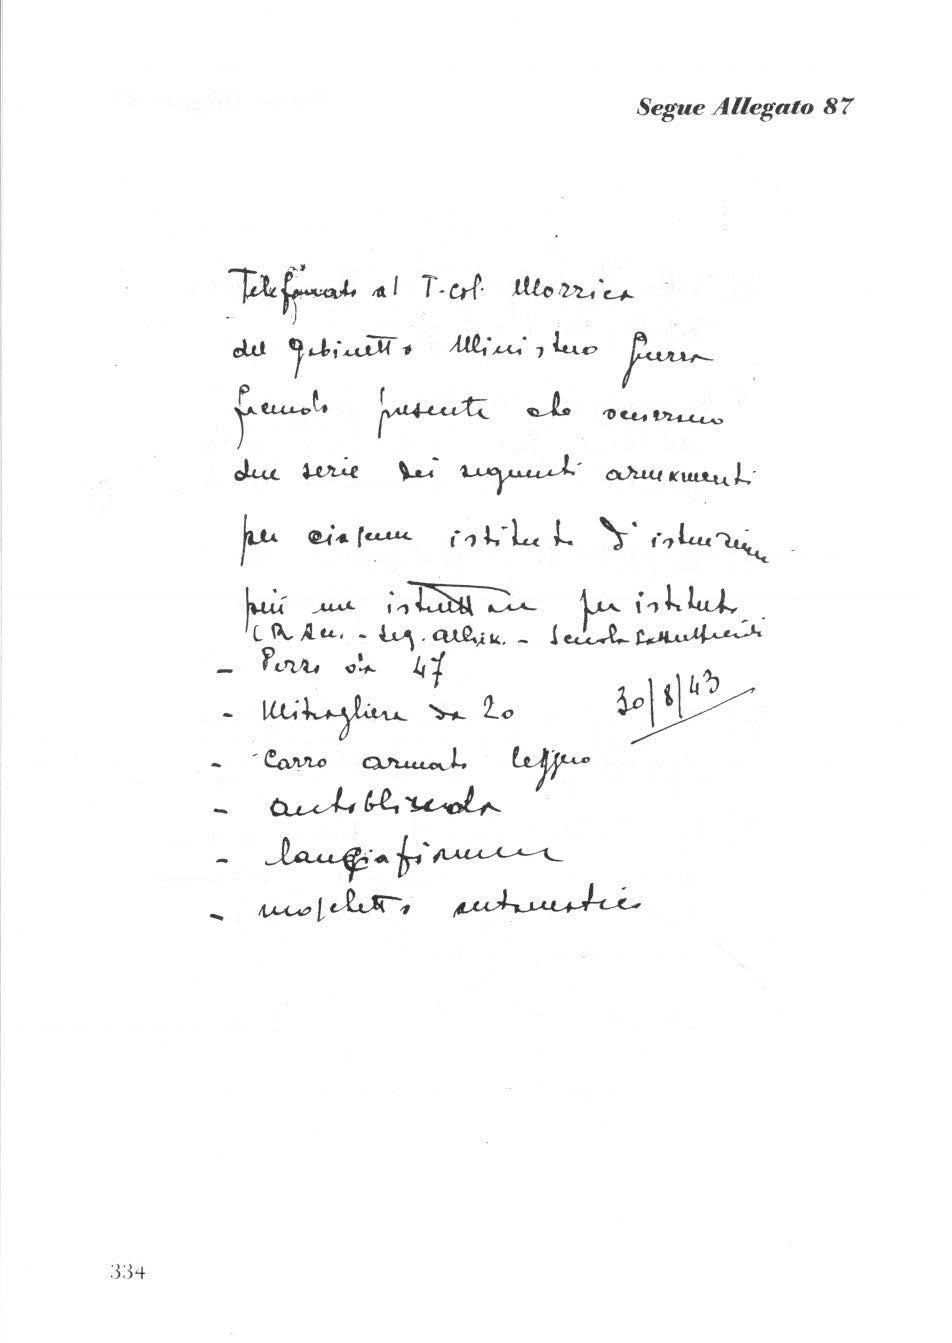 Segue Allegato 87
Telefonato al T. Col. Morrica
del Gabinetto Ministero Guerra
facendo presente che occorrono
due serie dei seguenti armamenti
per ciascun istituto d'istruzione
più un istruttore per istituto
- Scuola Sottufficiali
- Pezzo da 47
30/8/43
- Mitragliera da 20
- Carro armato leggero
- autoblinda
- lanciafiamme
- moschetto automatico
334